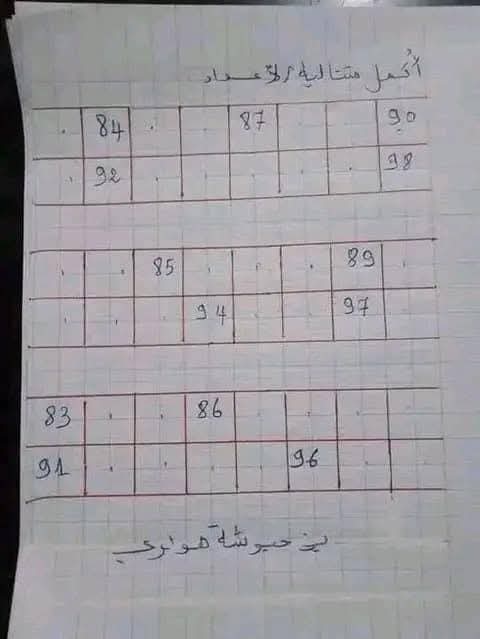 أكمل متتالية الأعداد
. 84 . . 87 . . 90
. 92 . . . . . 98
. . 85 . . . 89 .
. . . 94 . . 97 .
83 . . 86 . . . .
91 . . . . 96 . .
هواري